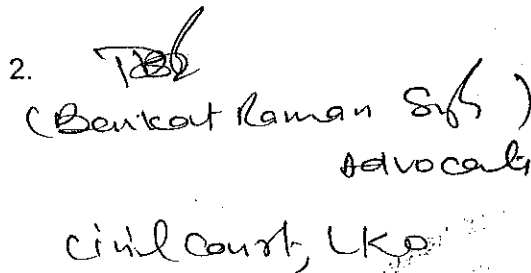 2.
(Benkat Raman Singh)
Advocate
Civil Court, LKO